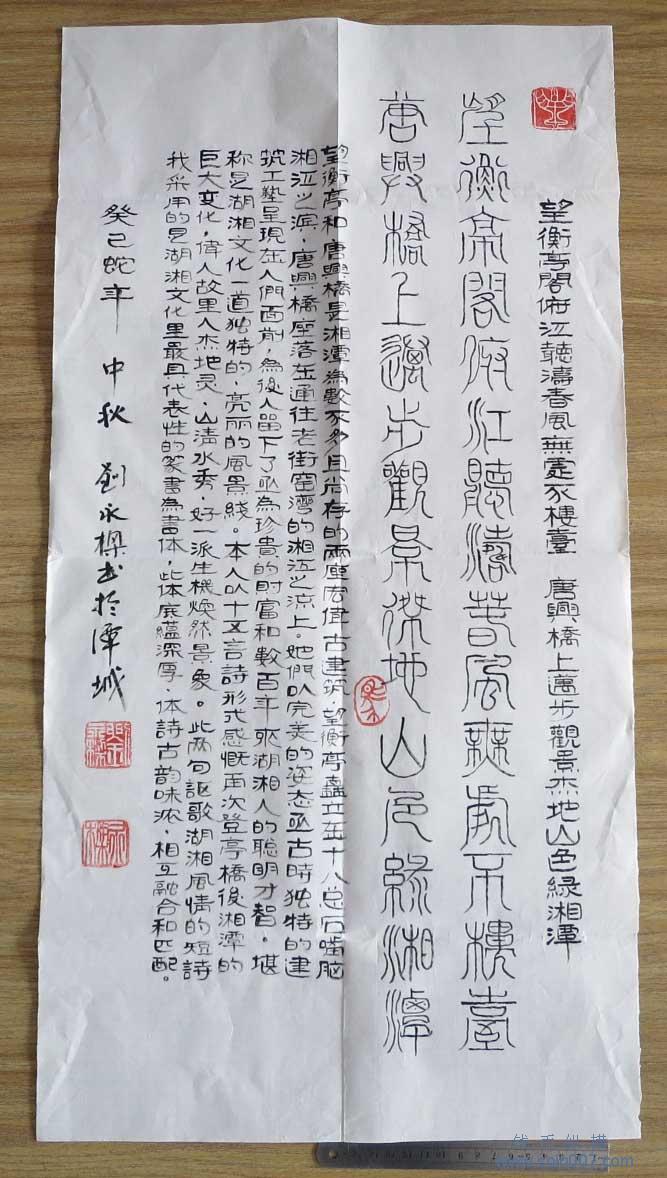 望衡亭閣俯江聽濤春風無處不樓臺 唐興橋上邁步觀景杰地山色綠湘潭
望衡亭閣俯江聽濤春風無處不樓臺
唐興橋上邁步觀景傑地山色綠湘潭
望衡亭和唐興橋是湘潭為數不多且尚存的兩座宏偉古建筑，望衡亭矗立在十八总石嘴脑
湘江之滨，唐興橋座落在通往老街窑灣的湘江之流上。她們以完美的姿态亟古時独特的建
筑工藝呈現在人們面前，為後人留下了亟為珍貴的財富和數百年來湖湘人的聪明才智，堪
称是湖湘文化一道独特的，亮丽的風景綫。本人以十五言詩形式感慨再次登亭橋後湘潭的
巨大变化，偉人故里人杰地灵，山清水秀，好一派生機焕然景象。此两句謳歌湖湘風情的短詩
我采用的是湖湘文化里最具代表性的篆書為書体，此体底蕴深厚，体詩古韵味浓，相互融合和匹配。
癸巳蛇年 中秋 劉永樑书於潭城
www.coin007.com